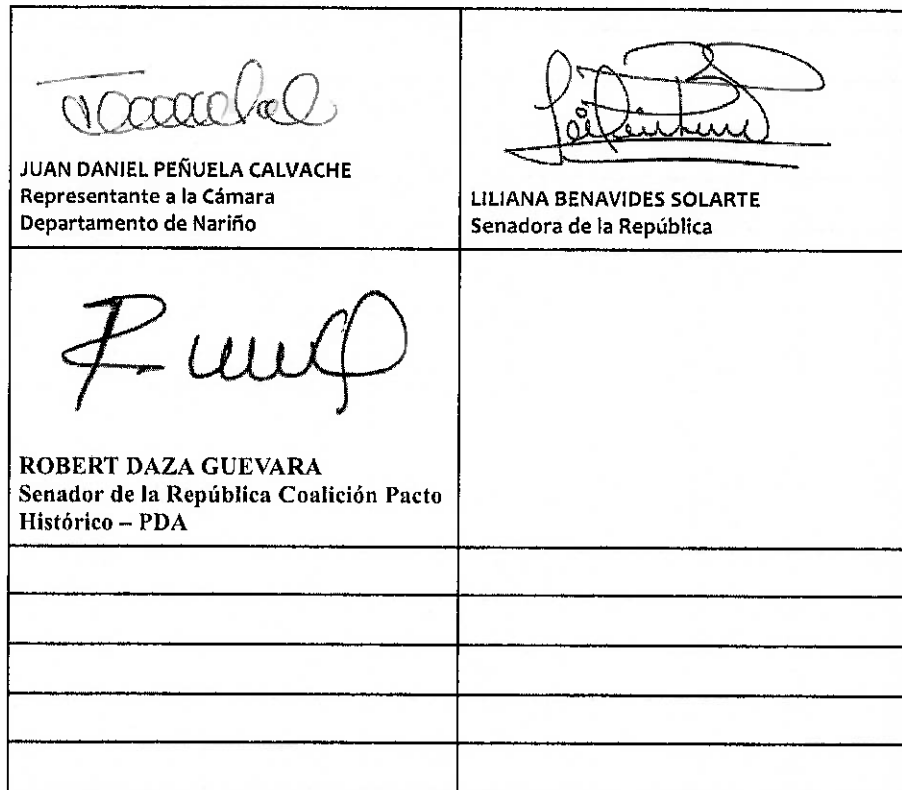 JUAN DANIEL PEÑUELA CALVACHE
Representante a la Cámara
Departamento de Nariño
LILIANA BENAVIDES SOLARTE
Senadora de la República
ROBERT DAZA GUEVARA
Senador de la República Coalición Pacto
Histórico – PDA